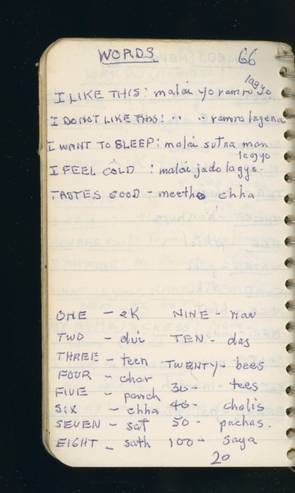 WORDS 66
I LIKE THIS: malai yo ramro lagyo
I DO NOT LIKE THIS: " " ramro lagena
I WANT TO SLEEP: malai sutna man lagyo
I FEEL COLD : malai jado lagyo.
TASTES GOOD - meetho chha
ONE - ek NINE - nau
TWO - dui TEN - das
THREE - teen TWENTY - bees
FOUR - char 30 - tees
FIVE - panch 40 - chalis
SIX - chha 50 - pachas.
SEVEN - sat 100 - saya
EIGHT - ath
20